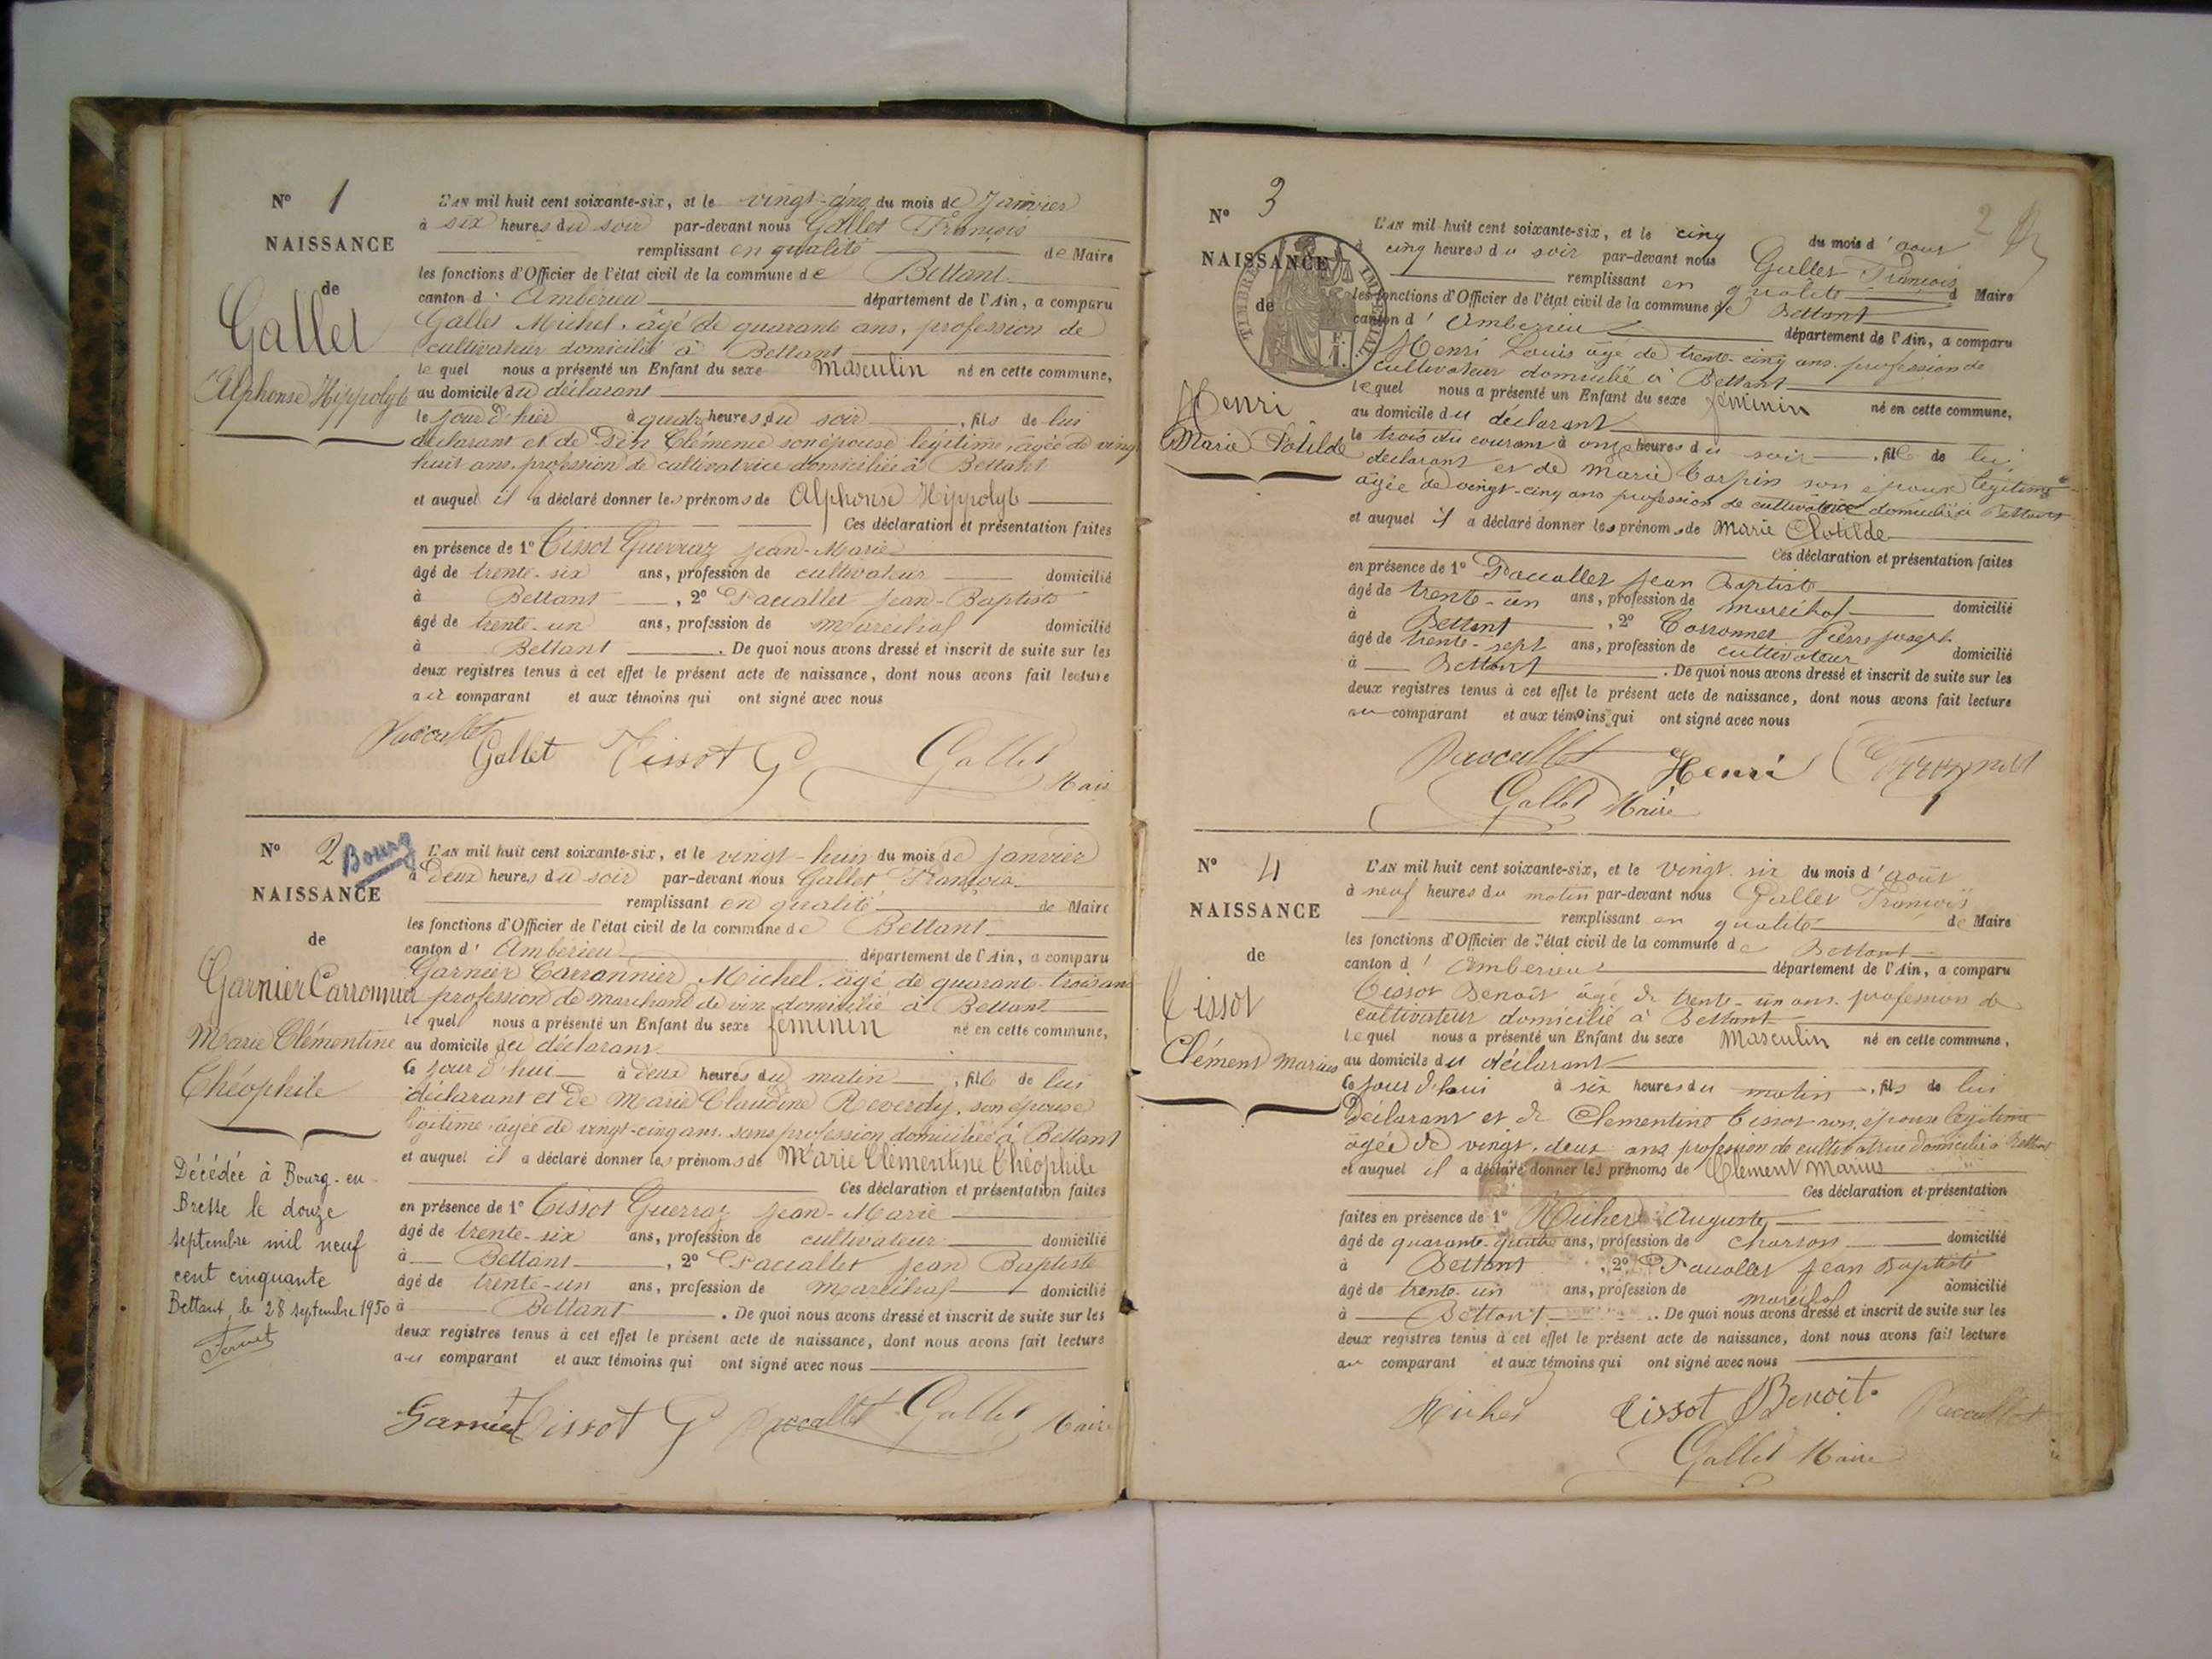 N° 1
NAISSANCE
de
Gallet
Alphonse Hippolyte
L'AN mil huit cent soixante-six, et le vingt-cinq du mois de Janvier
à six heures du soir par-devant nous Gallet François
remplissant en qualité de Maire
les fonctions d'Officier de l'état civil de la commune de Bettant
canton d' Ambérieu département de l'Ain, a comparu
Gallet Michel, âgé de quarante ans, profession de
cultivateur domicilié à Bettant
lequel nous a présenté un Enfant du sexe Masculin né en cette commune,
au domicile du déclarant
le jour d'hier à quatre heures du soir, fils de lui
déclarant et de Clémence son épouse légitime, âgée de vingt
huit ans, profession de cultivatrice domiciliée à Bettant
et auquel il a déclaré donner les prénoms de Alphonse Hippolyte
Ces déclaration et présentation faites
en présence de 1° Tissot Guerraz Jean-Marie
âgé de trente-six ans, profession de cultivateur domicilié
à Bettant, 2° Paccallet Jean-Baptiste
âgé de trente-un ans, profession de maréchal domicilié
à Bettant. De quoi nous avons dressé et inscrit de suite sur les
deux registres tenus à cet effet le présent acte de naissance, dont nous avons fait lecture
au comparant et aux témoins qui ont signé avec nous
Paccallet
Gallet Tissot G Gallet
Maire
N° 2 Bourg
NAISSANCE
de
Garnier Carronnier
Marie Clémentine
Théophile
L'AN mil huit cent soixante-six, et le vingt-huit du mois de janvier
à Deux heures du soir par-devant nous Gallet François
remplissant en qualité de Maire
les fonctions d'Officier de l'état civil de la commune de Bettant
canton d' Ambérieu département de l'Ain, a comparu
Garnier Carronnier Michel, âgé de quarante-trois ans
profession de marchand de vin domicilié à Bettant
lequel nous a présenté un Enfant du sexe féminin né en cette commune,
au domicile du déclarant
ce jour d'hui à deux heures du matin, fille de lui
déclarant et de Marie Claudine Reverdy, son épouse
légitime âgée de vingt-cinq ans, sans profession domiciliée à Bettant
et auquel il a déclaré donner les prénoms de Marie Clémentine Théophile
Ces déclaration et présentation faites
en présence de 1° Tissot Guerraz Jean-Marie
âgé de trente-six ans, profession de cultivateur domicilié
à Bettant, 2° Paccallet Jean Baptiste
âgé de trente-un ans, profession de maréchal domicilié
à Bettant. De quoi nous avons dressé et inscrit de suite sur les
deux registres tenus à cet effet le présent acte de naissance, dont nous avons fait lecture
au comparant et aux témoins qui ont signé avec nous
Garnier Tissot G Paccallet Gallet Maire
Décédée à Bourg-en
Bresse le douze
septembre mil neuf
cent cinquante
Bettant, le 28 septembre 1950
N° 3
NAISSANCE
de
TIMBRE IMPÉRIAL
Henri
Marie Clotilde
2
L'AN mil huit cent soixante-six, et le cinq du mois d'aout
à cinq heures du soir par-devant nous Gallet François
remplissant en qualité d Maire
les fonctions d'Officier de l'état civil de la commune de Bettant
canton d' Amberieu département de l'Ain, a comparu
Henri Louis âgé de trente-cinq ans, profession de
cultivateur domicilié à Bettant
lequel nous a présenté un Enfant du sexe féminin né en cette commune,
au domicile du déclarant
le trois du courant à onze heures du soir, fille de lui
déclarant et de Marie Carpin son épouse légitime
âgée de vingt-cinq ans profession de cultivatrice domiciliée à Bettant
et auquel il a déclaré donner les prénoms de Marie Clotilde
Ces déclaration et présentation faites
en présence de 1° Paccallet Jean Baptiste
âgé de trente-un ans, profession de maréchal domicilié
à Bettant, 2° Corronnet Pierre Joseph
âgé de trente-sept ans, profession de cultivateur domicilié
à Bettant. De quoi nous avons dressé et inscrit de suite sur les
deux registres tenus à cet effet le présent acte de naissance, dont nous avons fait lecture
au comparant et aux témoins qui ont signé avec nous
Paccallet Henri
Gallet Maire
N° 4
NAISSANCE
de
Tissot
Clément Marius
L'AN mil huit cent soixante-six, et le vingt-six du mois d'août
à neuf heures du matin par-devant nous Gallet François
remplissant en qualité de Maire
les fonctions d'Officier de l'état civil de la commune de Bettant
canton d' Amberieu département de l'Ain, a comparu
Tissot Benoît âgé de trente-un ans, profession de
cultivateur domicilié à Bettant
lequel nous a présenté un Enfant du sexe Masculin né en cette commune,
au domicile du déclarant
ce jour d'hui à six heures du matin, fils de lui
Déclarant et de Clementine Tissot son épouse légitime
âgée de vingt-deux ans profession de cultivatrice domiciliée à Bettant
et auquel il a déclaré donner les prénoms de Clément Marius
Ces déclaration et présentation
faites en présence de 1° Richer Auguste
âgé de quarante-quatre ans, profession de charron domicilié
à Bettant, 2° Paccallet Jean Baptiste
âgé de trente-un ans, profession de maréchal domicilié
à Bettant. De quoi nous avons dressé et inscrit de suite sur les
deux registres tenus à cet effet le présent acte de naissance, dont nous avons fait lecture
au comparant et aux témoins qui ont signé avec nous
Richer Tissot Benoit Paccallet
Gallet Maire